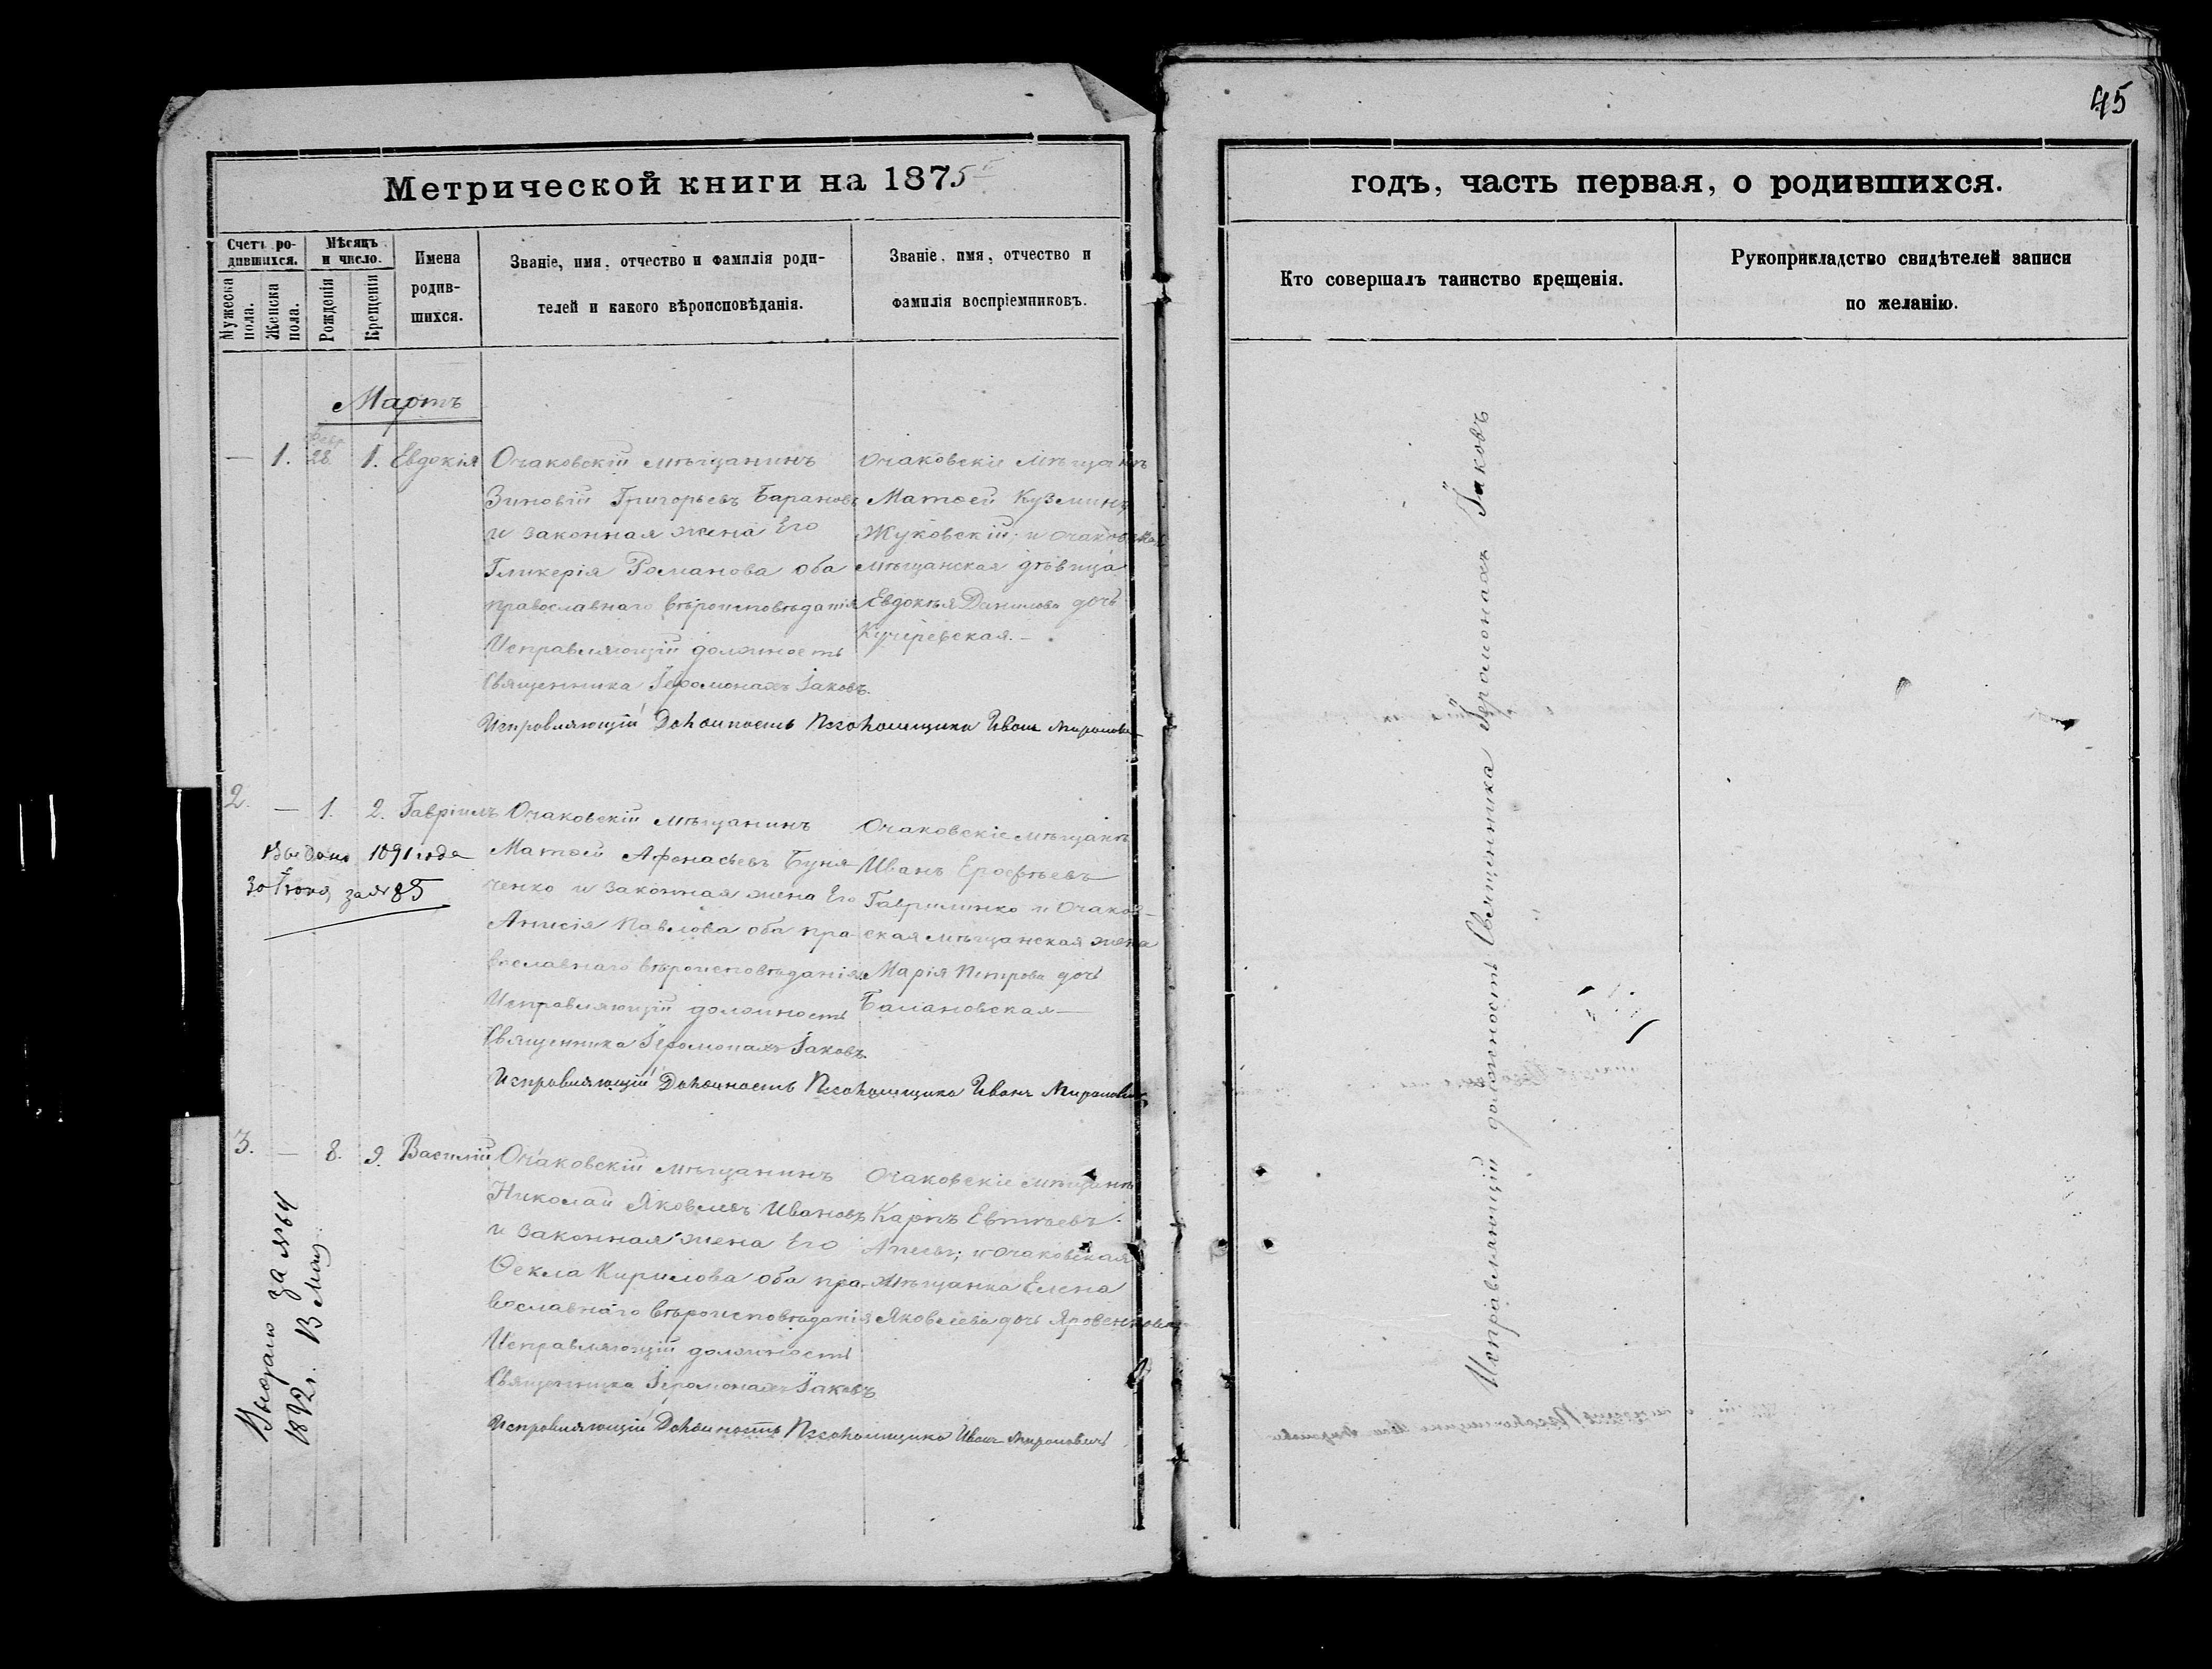 45
Метрической книги на 1875
годъ, часть первая, о родившихся.
Счетъ ро-
дившихся.
Мужеска пола.
Женска пола.
Мѣсяцъ
и число.
Рожденія
Крещенія
Имена
родив-
шихся.
Званіе, имя, отчество и фамилія роди-
телей и какого вѣроисповѣданія.
Званіе, имя, отчество и
фамилія воспріемниковъ.
Кто совершалъ таинство крещенія.
Рукоприкладство свидѣтелей записи
по желанію.
Мартъ
— 1. Февр 28. 1. Евдокія
Очаковскій мѣщанинъ
Зиновій Григорьевъ Барановъ
и законная жена Его
Гликерія Романова оба
православнаго вѣроисповѣданія
Исправляющій должность
Священника Іеромонахъ Іаковъ.
Исправляющій Должность Псаломщика Иванъ Мироновичъ
Очаковскіе мѣщанѣ
Матѳей Кузминъ
Жуковскій; и очаковская
мѣщанская дѣвица
Евдокѣя Данилова дочь
Кучеревская.—
2. — 1. 2. Гавріилъ
Выдано 1891 года
30 Іюня, за № 85
Очаковскій мѣщанинъ
Матѳей Афонасьевъ Буня
ченко и законная жена Его
Анисія Павлова оба пра-
вославнаго вѣроисповѣданія.
Исправляющій должность
Священника Іеромонахъ Іаковъ.
Исправляющій Должность Псаломщика Иванъ Мироновичъ
Очаковскіе мѣщанѣ
Иванъ Ерофѣевъ
Гаврилинко и Очаков-
ская мѣщанская жена
Марія Петрова дочь
Балановская—
3. — 8. 9. Василій
Выдано за № 64
1892 г. 13 Мая
Очаковскій мѣщанинъ
Николай Яковлевъ Ивановъ
и законная жена Его
Ѳекла Кирилова оба пра-
вославнаго вѣроисповѣданія
Исправляющій должность
Священника Іеромонахъ Іаковъ
Исправляющій Должность Псаломщика Иванъ Мироновичъ
Очаковскіе мѣщанѣ
Карпъ Евтѣевъ
и очаковская
мѣщанка Елена
Яковлева дочь
Исправляющій должность Священника Іеромонахъ Іаковъ